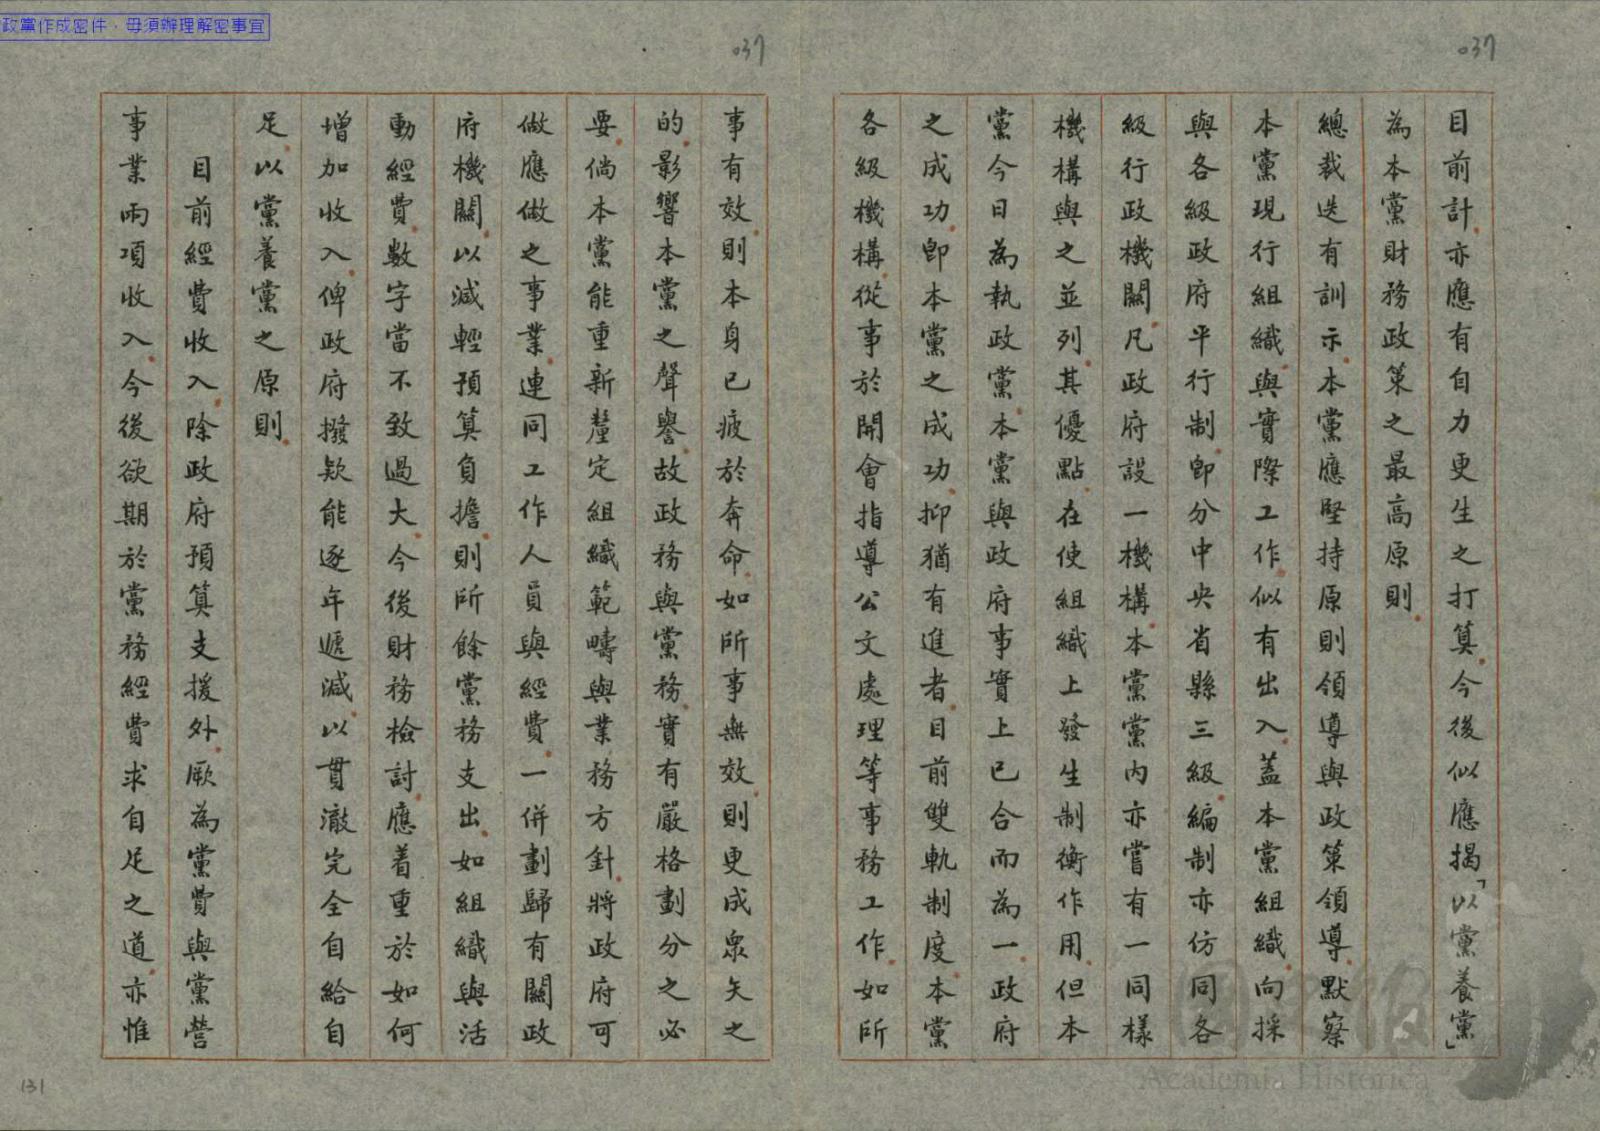 政黨作成密件，毋須辦理解密事宜
037
037
目前計亦應有自力更生之打算今後似應揭「以黨養黨」
為本黨財務政策之最高原則
總裁迭有訓示本黨應堅持原則領導與政策領導默察
本黨現行組織與實際工作似有出入蓋本黨組織向採
與各級政府平行制即分中央省縣三級編制亦仿同各
級行政機關凡政府設一機構本黨黨內亦嘗有一同樣
機構與之並列其優點在使組織上發生制衡作用但本
黨今日為執政黨本黨與政府事實上已合而為一政府
之成功即本黨之成功抑猶有進者目前雙軌制度本黨
各級機構從事於開會指導公文處理等事務工作如所
事有效則本身已疲於奔命如所事無效則更成眾矢之
的影響本黨之聲譽故政務與黨務實有嚴格劃分之必
要倘本黨能重新釐定組織範疇與業務方針將政府可
做應做之事業連同工作人員與經費一併劃歸有關政
府機關以減輕預算負擔則所餘黨務支出如組織與活
動經費數字當不致過大今後財務檢討應着重於如何
增加收入俾政府撥款能逐年遞減以貫澈完全自給自
足以黨養黨之原則
目前經費收入除政府預算支援外厥為黨費與黨營
事業兩項收入今後欲期於黨務經費求自足之道亦惟
131
Academia Historica